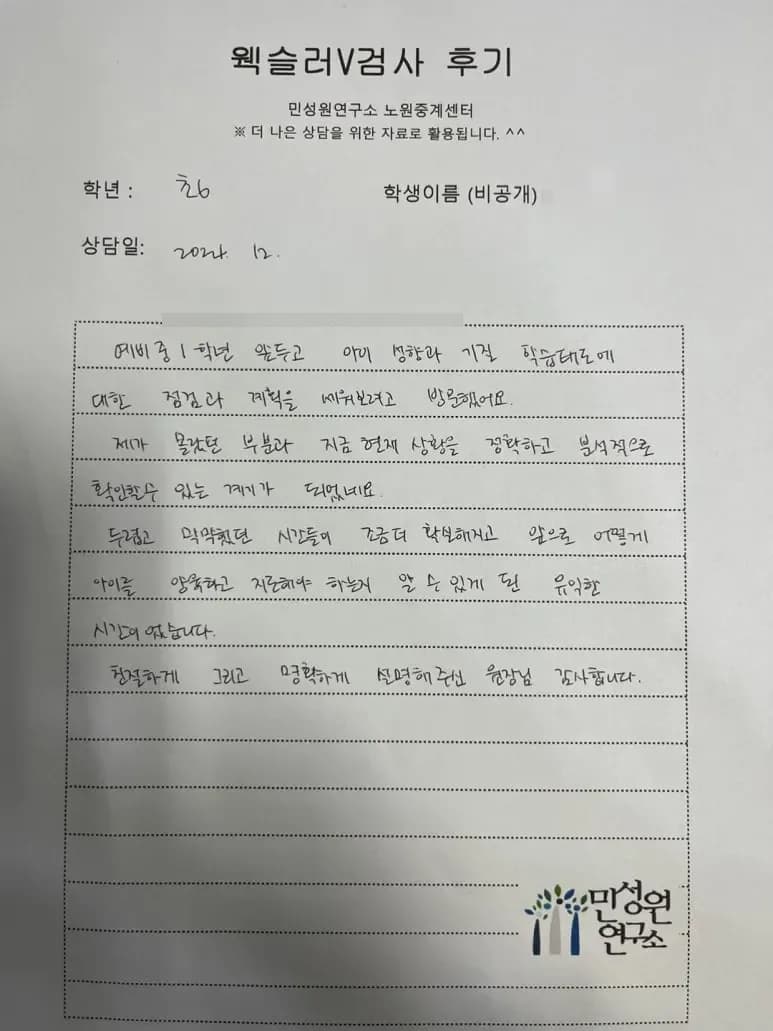 웩슬러V검사 후기
민성원연구소 노원중계센터
※ 더 나은 상담을 위한 자료로 활용됩니다. ^^
학년 : 초6 학생이름 (비공개)
상담일: 2024. 12.
예비중1학년 앞두고 아이 성향과 기질 학습태도에
대한 점검과 계획을 세워보려고 방문했어요.
제가 몰랐던 부분과 지금 현재 상황을 정확하고 분석적으로
확인할수 있는 계기가 되었네요.
두렵고 막막했던 시간들이 조금더 확실해지고 앞으로 어떻게
아이를 양육하고 지도해야 하는지 알 수 있게 된 유익한
시간이었습니다.
친절하게 그리고 명확하게 설명해주신 원장님 감사합니다.
민성원
연구소